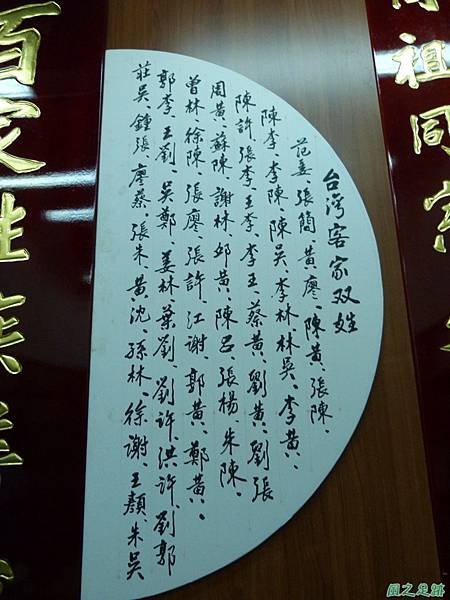 祖同宗
台灣客家双姓
范姜、張簡、黃廖、陳黃、張陳、
陳李、李陳、陳吳、李林、林吳、李黃、
陳許、張李、王李、李王、蔡黃、劉黃、劉張
周黃、蘇陳、謝林、邱黃、陳呂、張楊、朱陳、
曾林、徐陳、張廖、張許、江謝、郭黃、鄭黃、
郭李、王劉、吳鄭、姜林、葉劉、劉許、洪許、劉郭
莊吳、鍾張、廖蔡、張朱、黃沈、孫林、徐謝、王顏、朱吳
百家姓族群
國之足跡